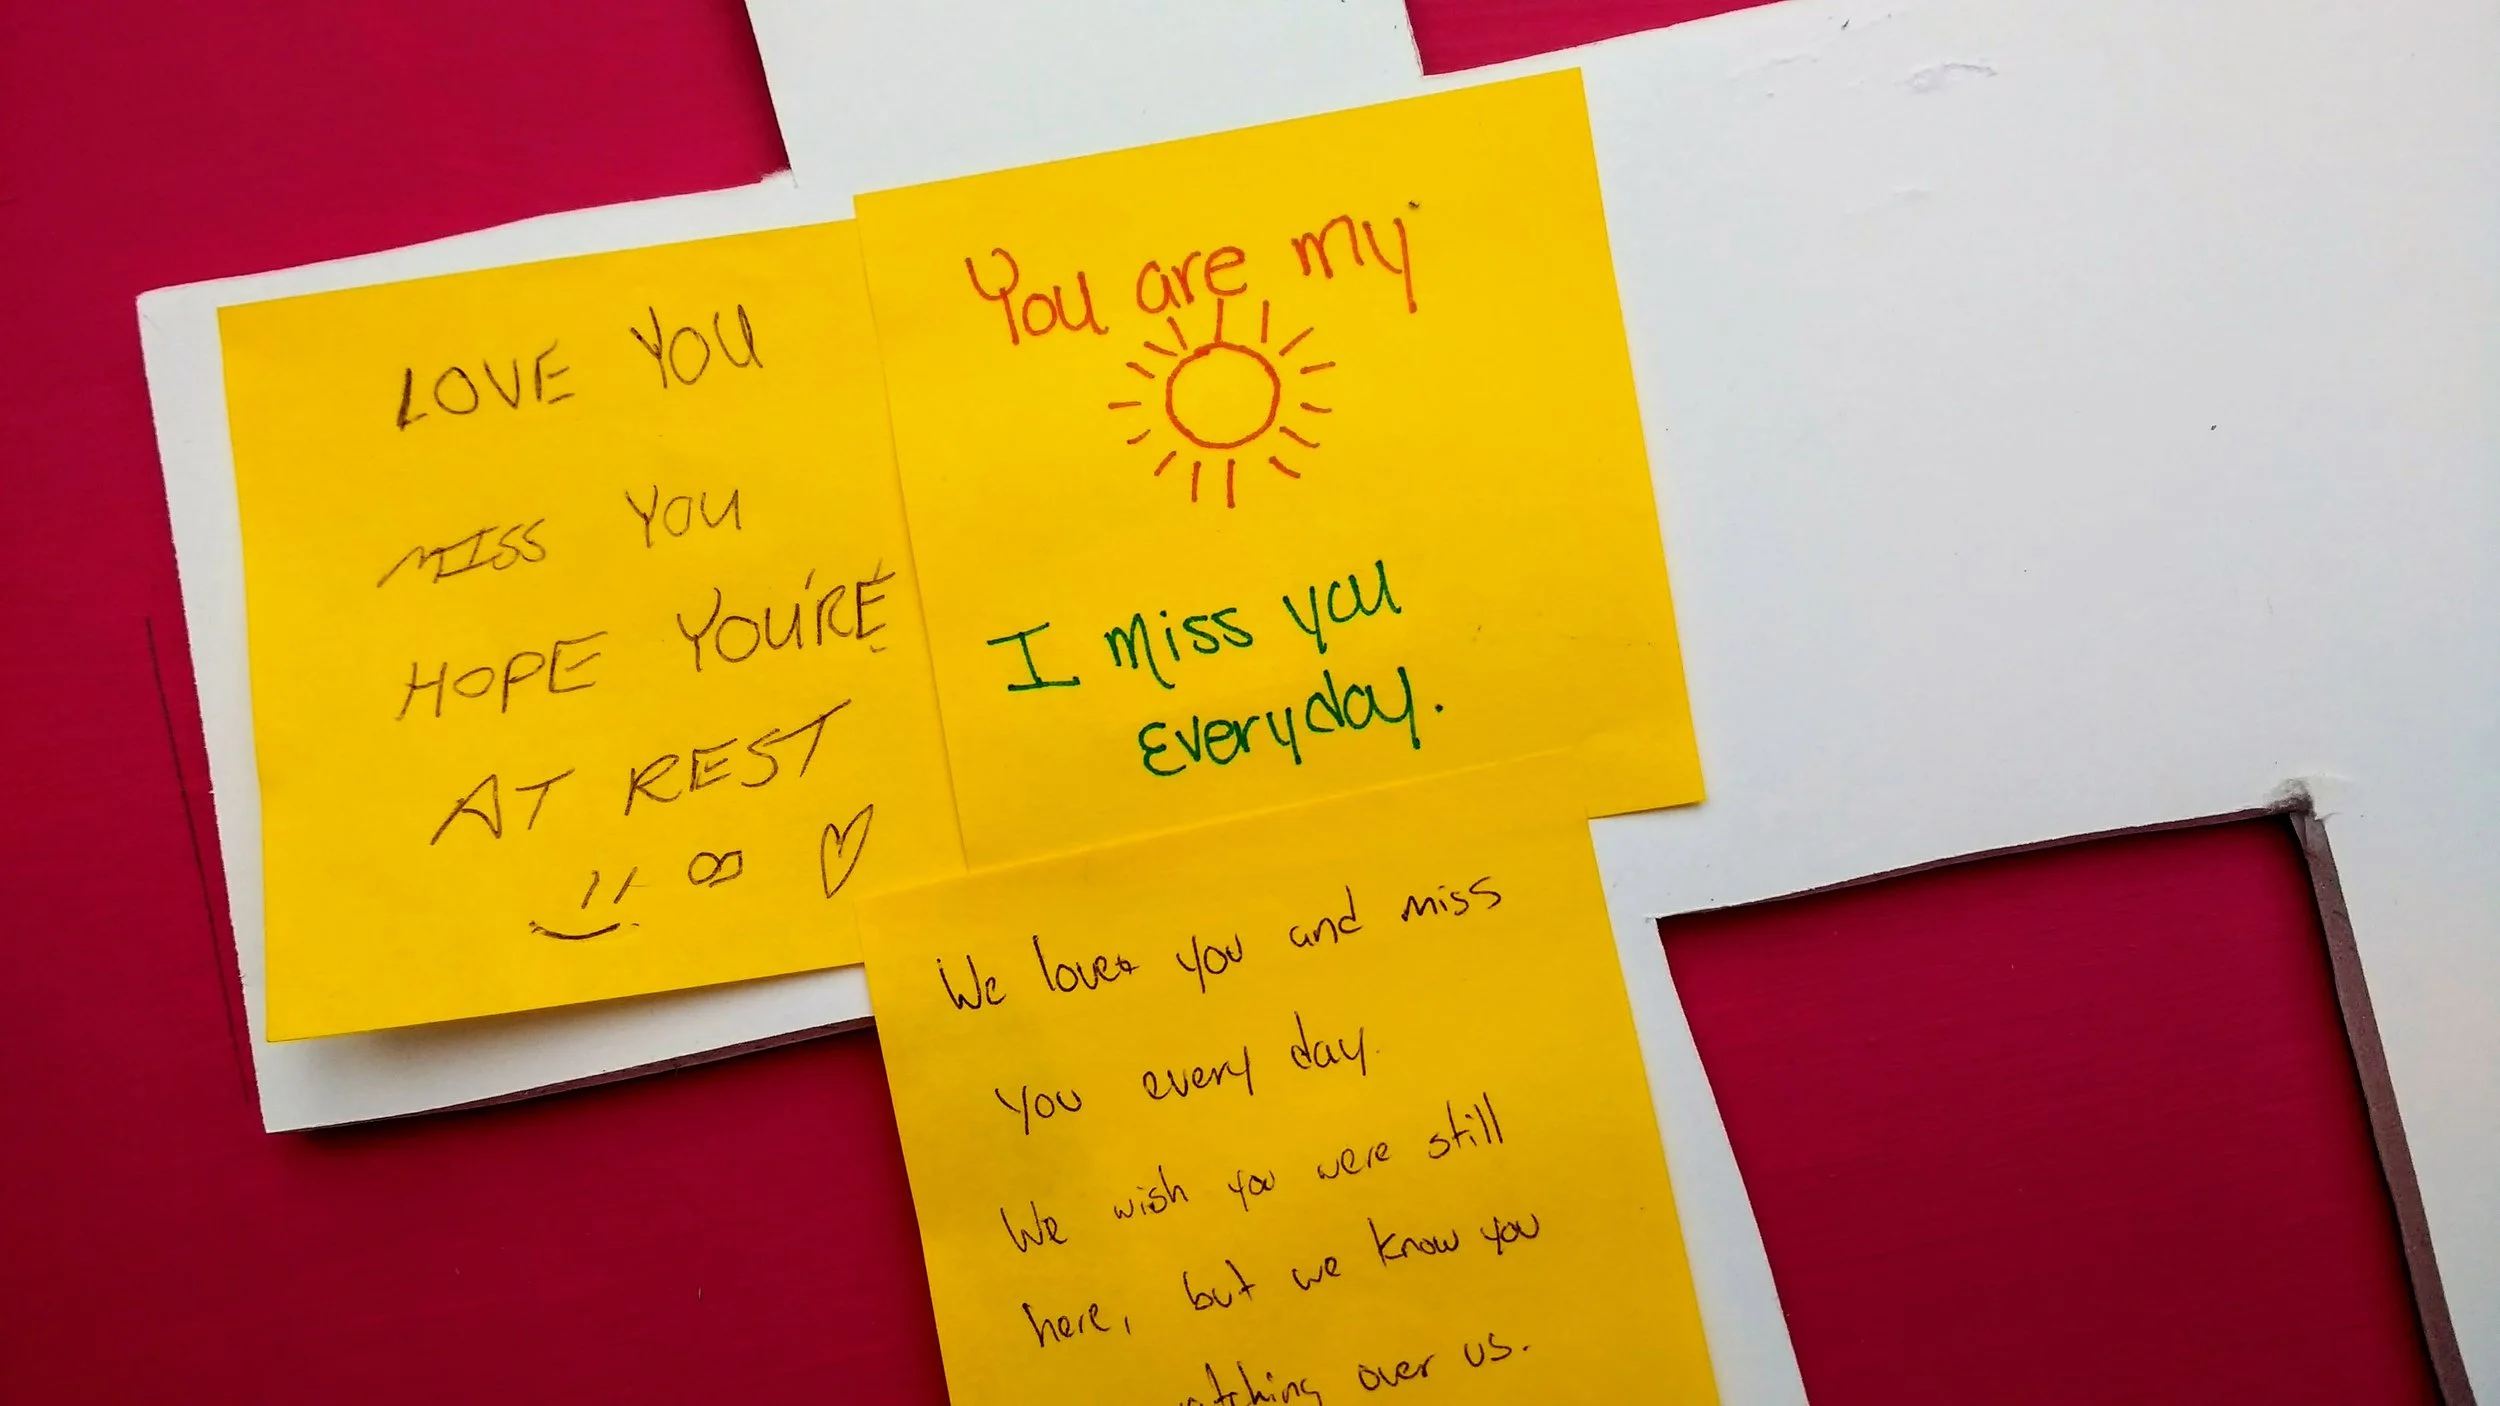 LOVE YOU
MISS YOU
HOPE YOU'RE
AT REST
You are my
I miss you
everyday.
We love you and miss
you every day.
We wish you were still
here, but we know you
over us.